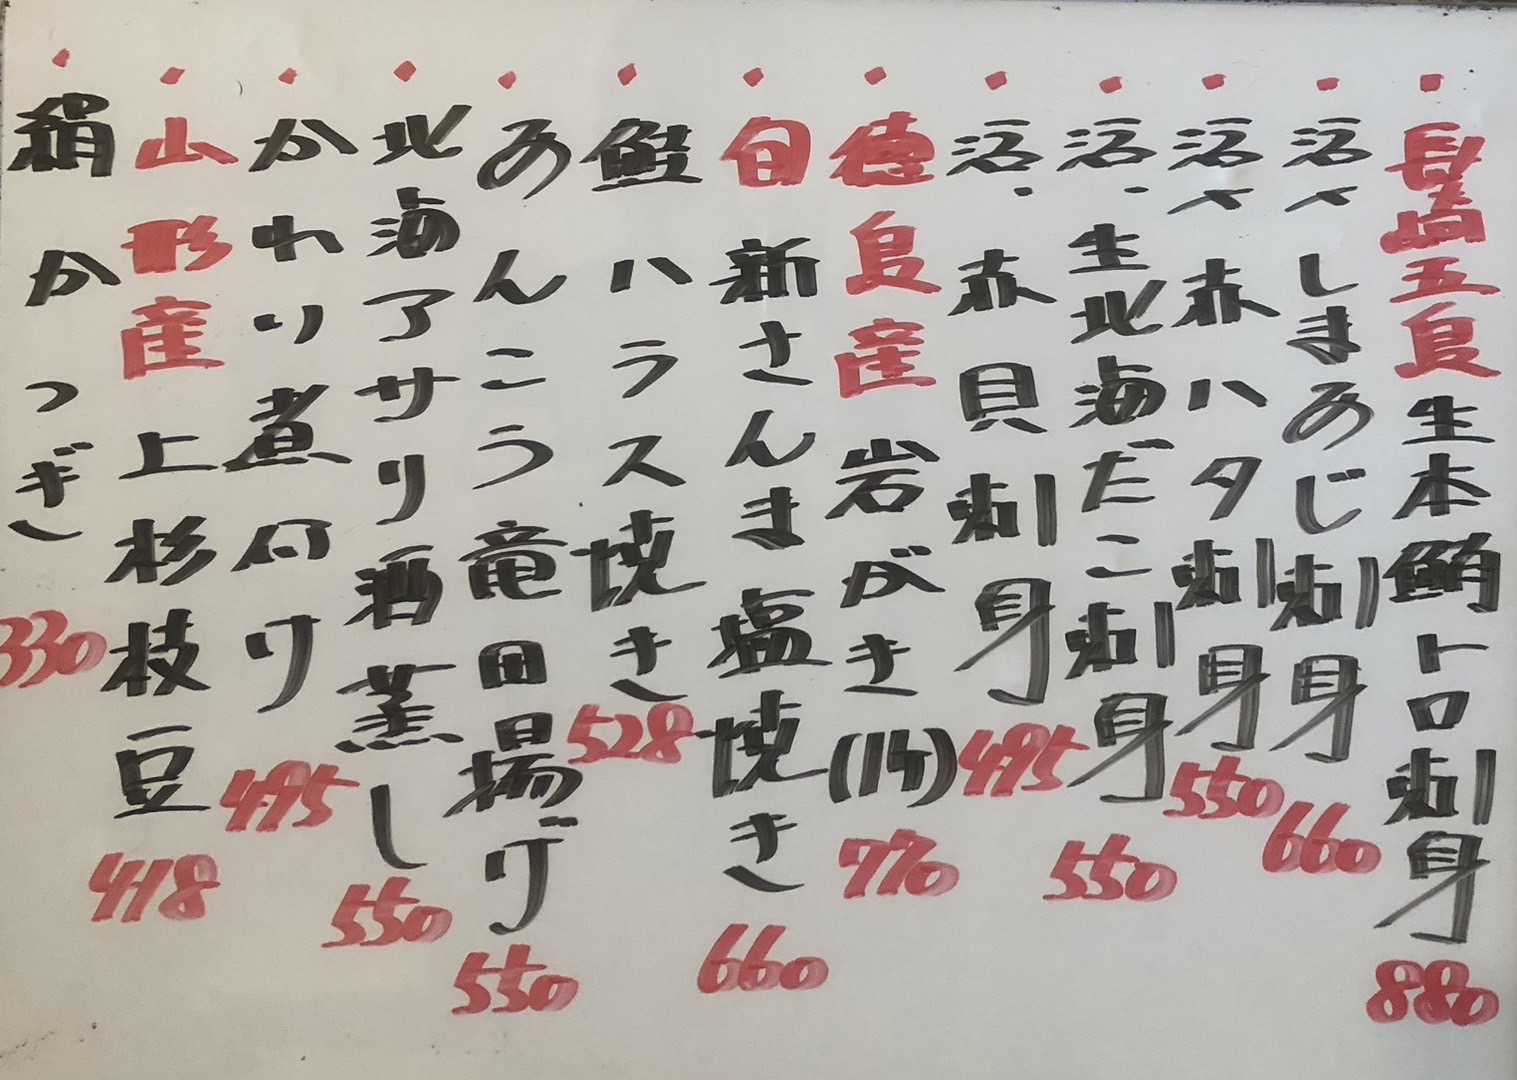 ・長崎五島生本鮪トロ刺身 880
・活〆しまあじ刺身 660
・活〆赤ハタ刺身 550
・活、生北海だこ刺身 550
・活、赤貝刺身 495
・徳島産岩がき(1ケ) 770
・旬新さんま塩焼き 660
・鮭ハラス焼き 528
・あんこう竜田揚げ 550
・北海アサリ酒蒸し 550
・かわり煮付け 495
・山形産上杉枝豆 418
・絹かつぎ 330